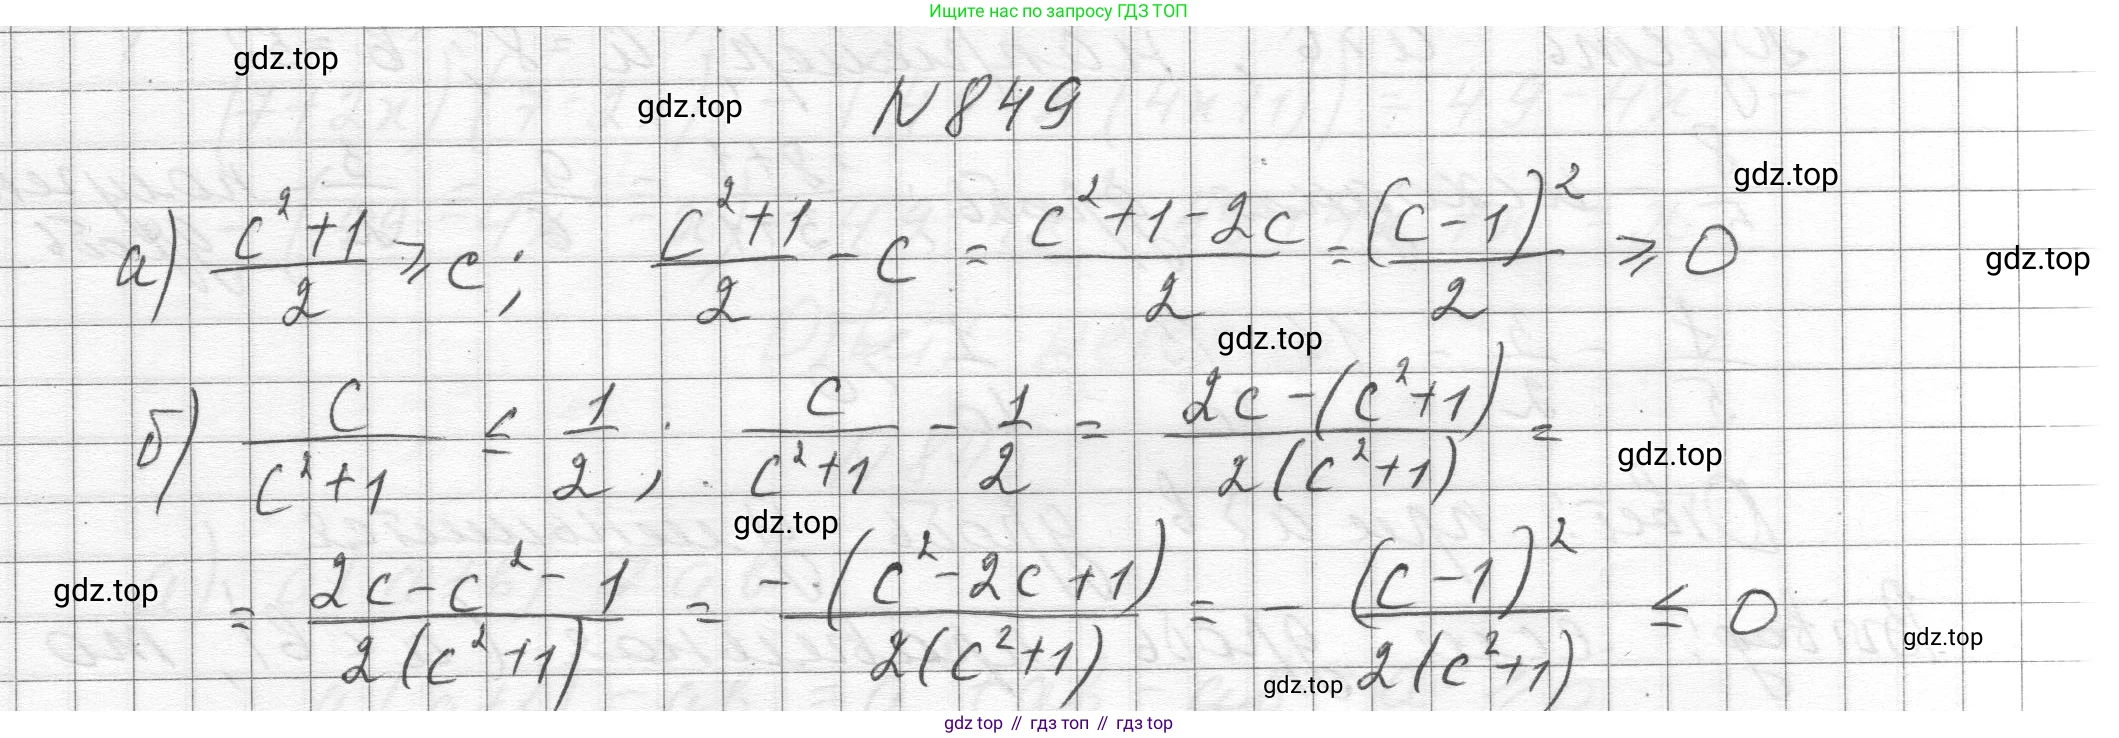 Ищите нас по запросу ГДЗ ТОП
gdz.top
gdz.top
N 849
gdz.top
а) (c²+1)/2 ⩾ c; (c²+1)/2 - c = (c²+1-2c)/2 = (c-1)²/2 ⩾ 0
gdz.top
gdz.top
б) c/(c²+1) ≤ 1/2; c/(c²+1) - 1/2 = (2c-(c²+1))/(2(c²+1)) =
gdz.top
gdz.top
gdz.top
= (2c-c²-1)/(2(c²+1)) = -(c²-2c+1)/(2(c²+1)) = - (c-1)²/(2(c²+1)) ≤ 0
gdz.top
gdz.top
gdz top // гдз топ // гдз top